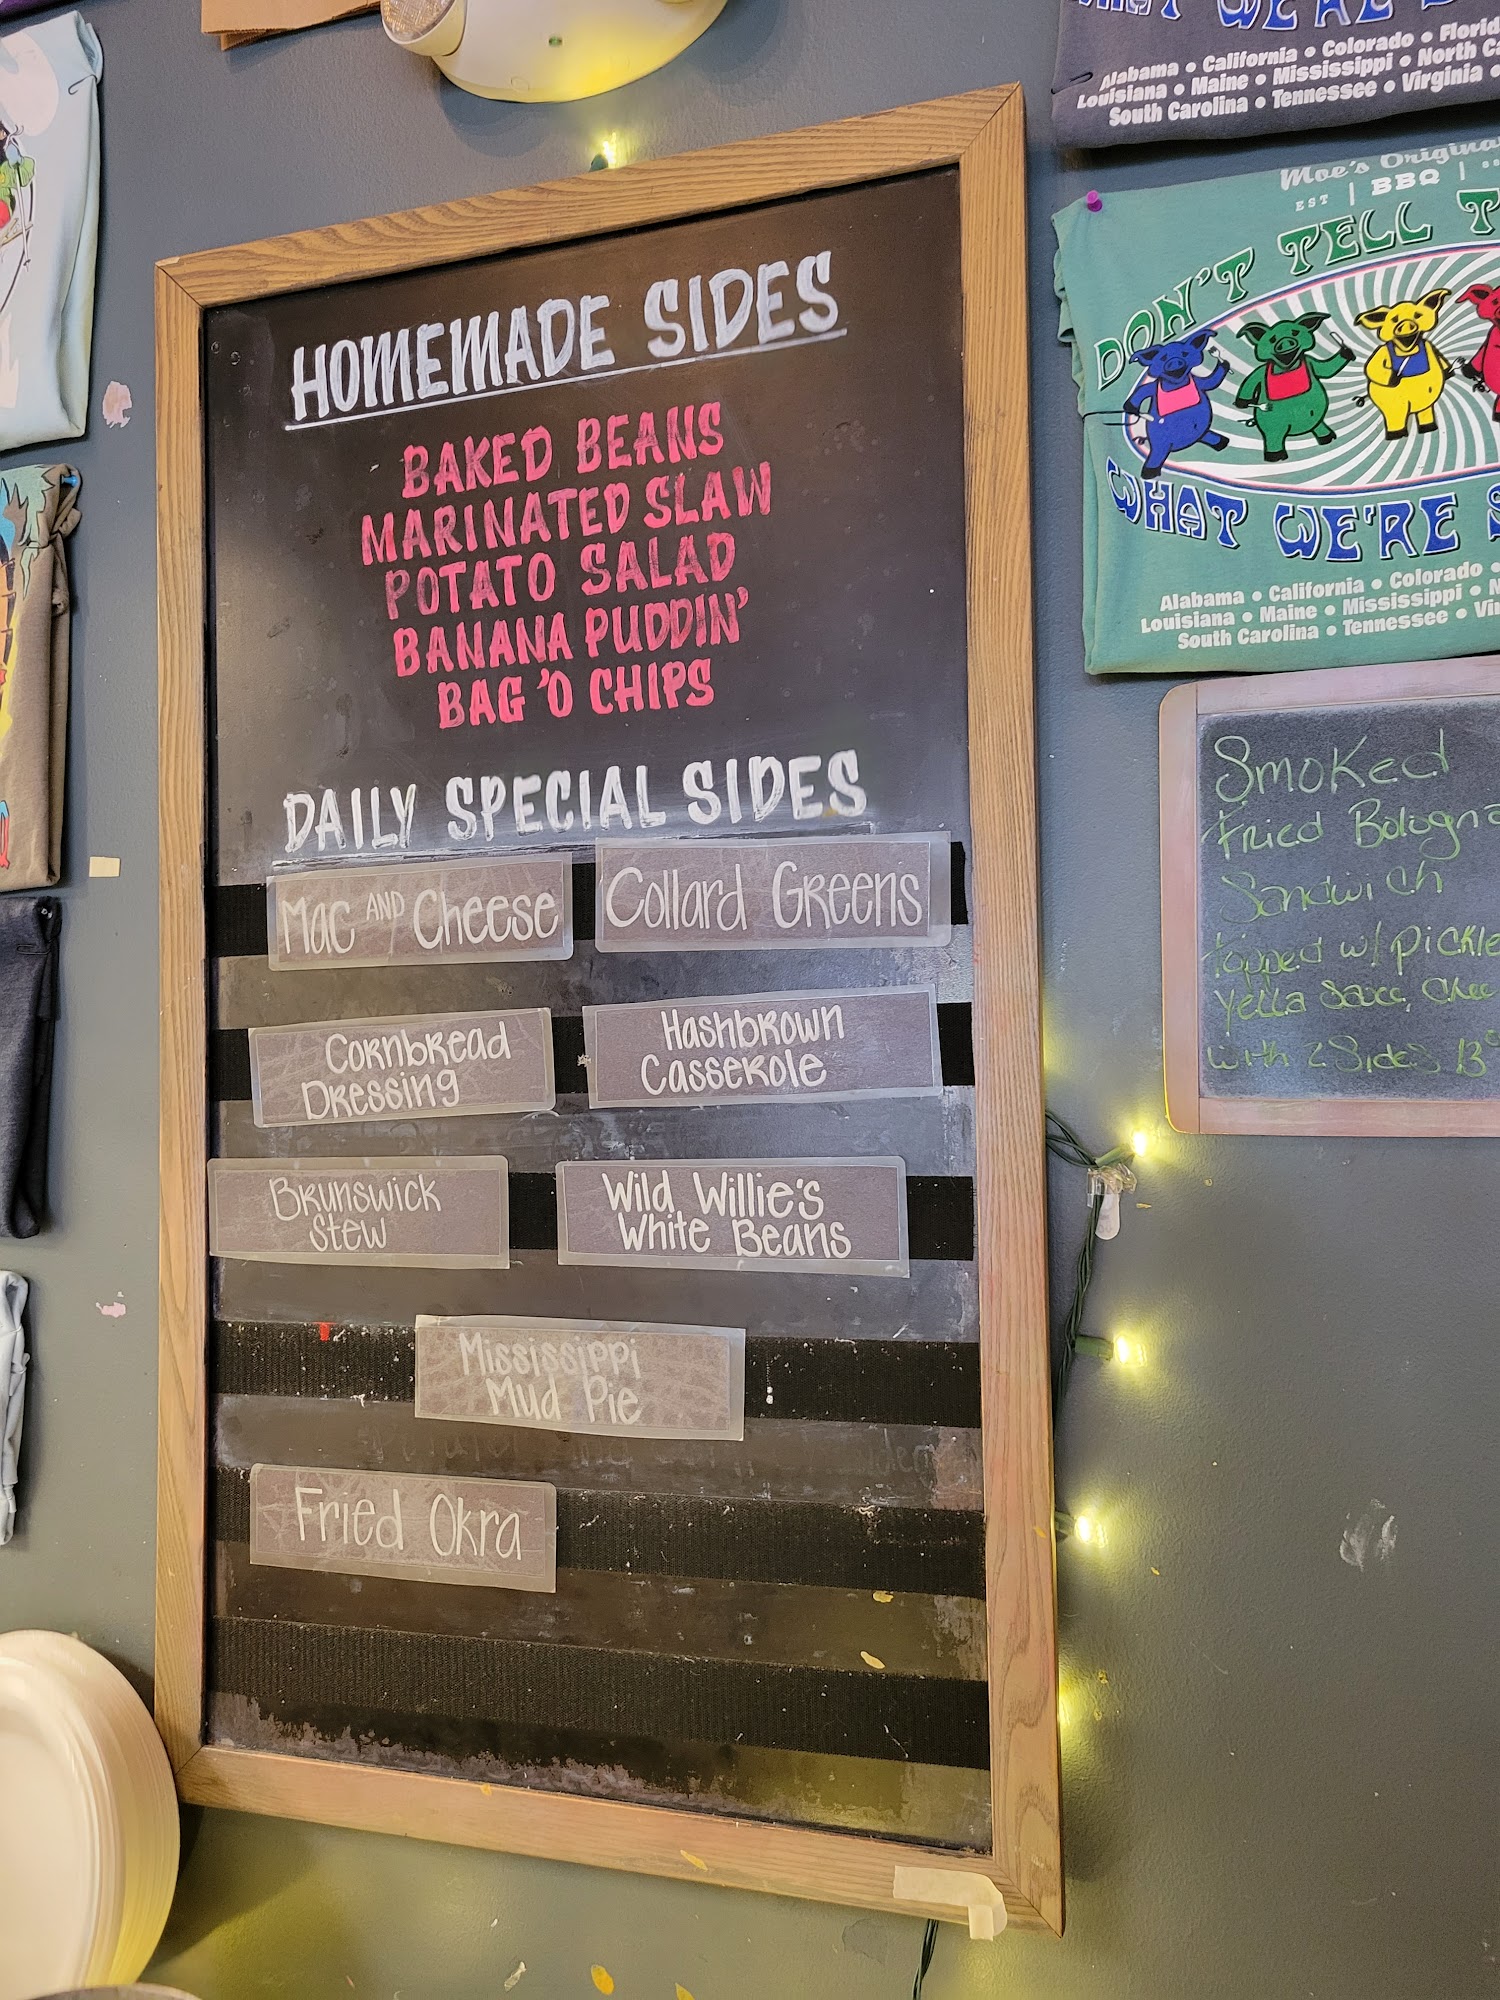 HOMEMADE SIDES
BAKED BEANS
MARINATED SLAW
POTATO SALAD
BANANA PUDDIN'
BAG 'O CHIPS
DAILY SPECIAL SIDES
Mac AND Cheese
Collard Greens
Cornbread
Dressing
Hashbrown
Casserole
Brunswick
Stew
Wild Willie's
White Beans
Mississippi
Mud Pie
Fried Okra
WHAT WE'RE
Alabama • California • Colorado •
Louisiana • Maine • Mississippi • North
South Carolina • Tennessee • Virginia •
Moe's Original
EST | BBQ |
DON'T TELL
WHAT WE'RE
Alabama • California • Colorado •
Louisiana • Maine • Mississippi •
South Carolina • Tennessee •
Smoked
Fried Bologna
Sandwich
topped w/ pickle
Yella Sauce,
with 2 Sides 13